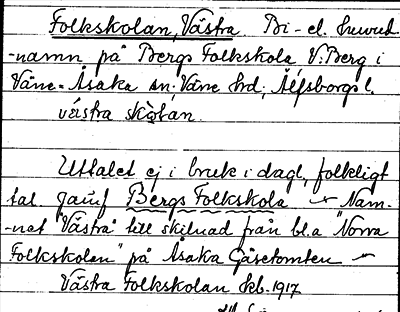 Folkskolan, Västra. Bi- el. huvud-
-namn på Bergs Folkskola V. Berg i
Väne-Åsaka sn; Väne hrd; Älfsborgs l.
västra skòlan.
Uttalet ej i bruk i dagl. folkligt
tal. Jämf Bergs Folkskola – Nam-
-net "Västra" till skilnad från bl.a "Norra
Folkskolan" på Åsaka Gåsetomten –
Västra Folkskolan Skb. 1917